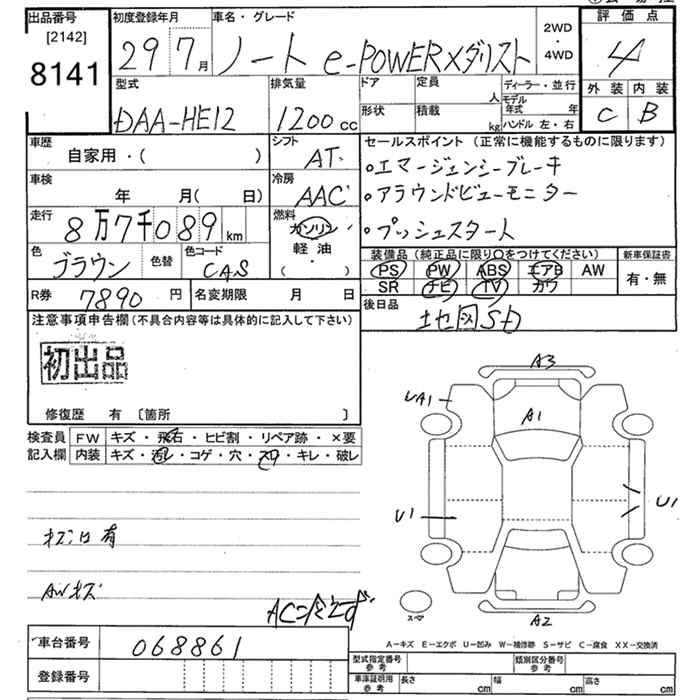 出品番号
[2142]
8141
初度登録年月
29 7月
車名・グレード
ノート e-POWERメダリスト
2WD
・
4WD
評価点
4
外装 内装
C B
型式
DAA-HE12
排気量
1200cc
ドア
定員
人
形状
積載
kg
ディーラー・並行
モデル年式 年
ハンドル 左・右
車歴
自家用・( )
シフト
AT
車検
年 月( 日)
冷房
AAC
走行
8万7千089km
燃料
ガソリン
軽・油
・( )
色
ブラウン
色替
色コード
CAS
R券 7890円
名変期限 月 日
セールスポイント(正常に機能するものに限ります)
・エマージェンシーブレーキ
・アラウンドビューモニター
・プッシュスタート
装備品(純正品に限り〇をつけてください)
PS PW ABS エアB AW
SR ナビ TV カワ
新車保証書
有・無
後日品
地図SD
注意事項申告欄(不具合内容等は具体的に記入して下さい)
初出品
修復歴 有 [箇所 ]
検査員
記入欄
FW キズ・飛石・ヒビ割・リペア跡・×要
内装 キズ・汚レ・コゲ・穴・スリ・キレ・破レ
有
AWキズ
A3
UA1
A1
U1
U1
A2
A=キズ E=エクボ U=凹み W=補修跡 S=サビ C=腐食 XX=交換済
車台番号 068861
登録番号
型式指定番号
参考
類別区分番号
参考
車庫証明用
参考
長さ cm 幅 cm 高さ cm